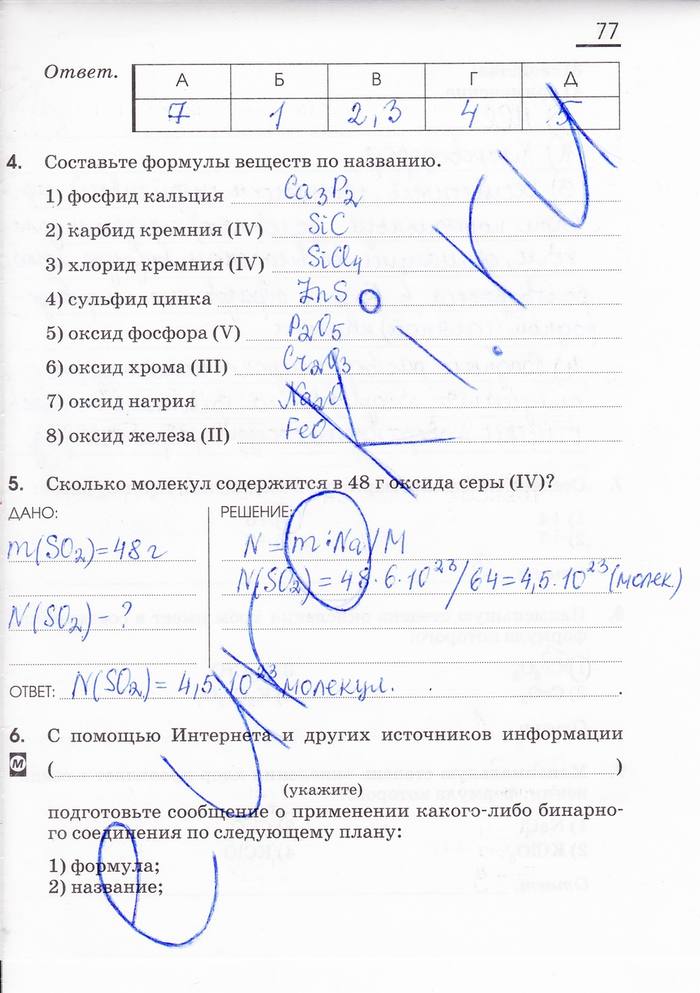 77
Ответ.
А Б В Г Д
7 1 2,3 4 5
4. Составьте формулы веществ по названию.
1) фосфид кальция Ca₃P₂
2) карбид кремния (IV) SiC
3) хлорид кремния (IV) SiCl₄
4) сульфид цинка ZnS
5) оксид фосфора (V) P₂O₅
6) оксид хрома (III) Cr₂O₃
7) оксид натрия Na₂O
8) оксид железа (II) FeO
5. Сколько молекул содержится в 48 г оксида серы (IV)?
ДАНО: РЕШЕНИЕ:
m(SO₂)=48 г N = m·Na/M
N(SO₂) = 48·6·10²³/64=4,5·10²³(молек.)
N(SO₂) – ?
ОТВЕТ: N(SO₂) = 4,5·10²³ молекул.
6. С помощью Интернета и других источников информации
М ( )
(укажите)
подготовьте сообщение о применении какого-либо бинарно-
го соединения по следующему плану:
1) формула;
2) название;